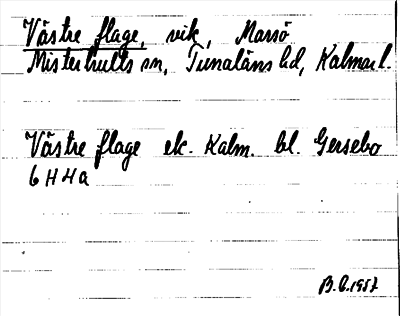 Västre flage, vik, Marsö
Misterhults sn, Tunaläns hd, Kalmar l.
Västre flage ek. Kalm. bl. Gersebo
6 H 4 a
B.L. 1957